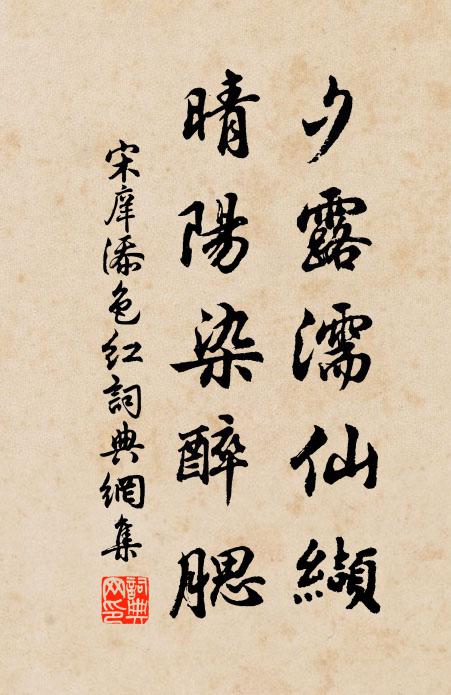 夕露濡仙纈
晴陽染醉腮
宋庠添色紅詞典網集
詞典網印